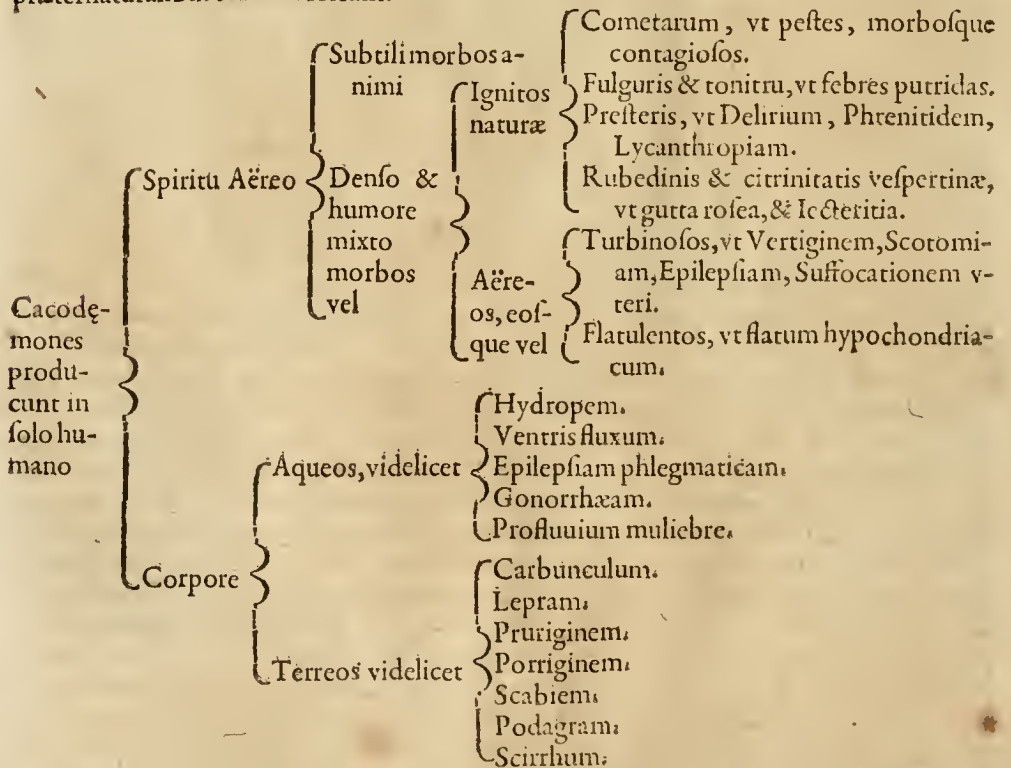 Cacodę-
mones
produ-
cunt in
ſolo hu-
mano
Spiritu Aëreo
Subtili morbos a-
nimi
Denſo &
humore
mixto
morbos
vel
Ignitos
naturæ
Cometarum, vt peſtes, morboſque
contagioſos.
Fulguris & tonitru, vt febres putridas.
Preſteris, vt Delirium, Phrenitidem,
Lycanthropiam.
Rubedinis & citrinitatis veſpertinæ,
vt gutta roſea, & Icteritia.
Aëre-
os, eoſ-
que vel
Turbinoſos, vt Vertiginem, Scotomi-
am, Epilepſiam, Suffocationem v-
teri.
Flatulentos, vt flatum hypochondria-
cum.
Corpore
Aqueos, videlicet
Hydropem.
Ventris fluxum.
Epilepſiam phlegmaticam.
Gonorrhæam.
Profluuium muliebre.
Terreos videlicet
Carbunculum.
Lepram.
Pruriginem.
Porriginem.
Scabiem.
Podagram.
Scirrhum.